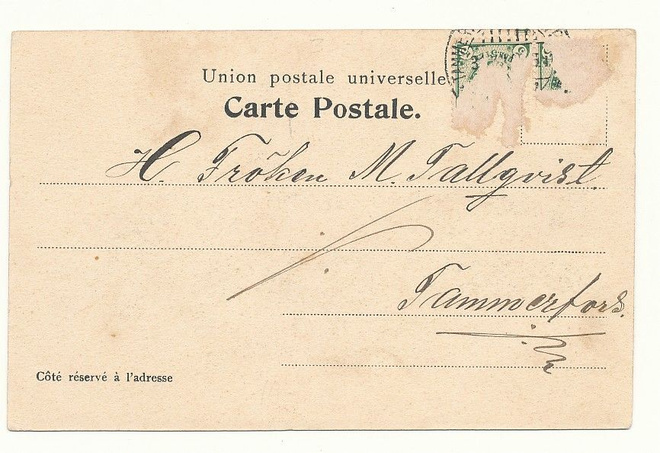 Union postale universelle
Carte Postale.
H. Fröken M. Tallqvist.
Tammerfors.
Côté réservé à l'adresse